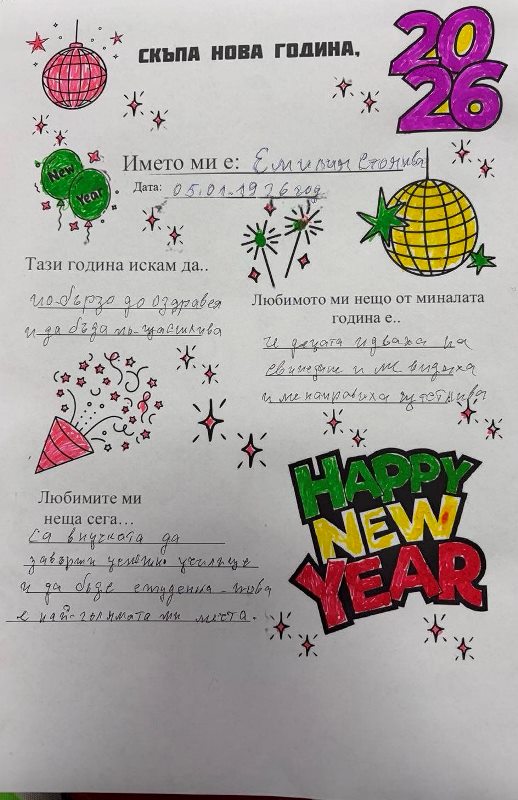 СКЪПА НОВА ГОДИНА,
2026
New
Year
Името ми е: Емилия Стоянова
Дата: 05.01.1926 год
Тази година искам да..
по-бързо да оздравея
и да бъда по-щастлива
Любимото ми нещо от миналата
година е..
Че децата идваха на
свиждане и ме видяха
и ме направиха щастлива
Любимите ми
неща сега...
Са внучката да
завърши успешно училище
и да бъде студентка - това
е най-голямата ми мечта.
HAPPY
NEW
YEAR